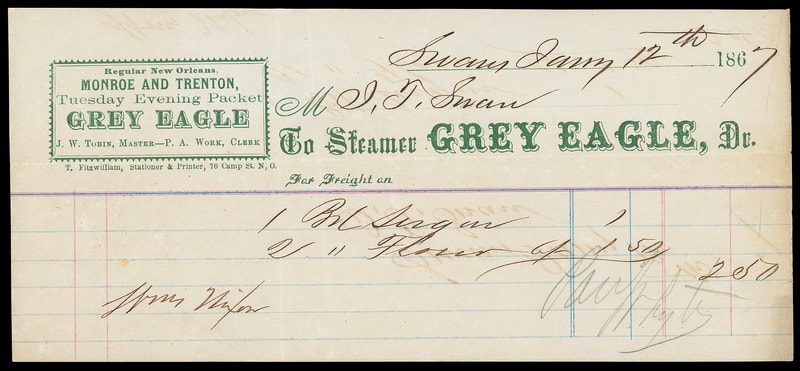 Regular New Orleans,
MONROE AND TRENTON,
Tuesday Evening Packet
GREY EAGLE
J. W. TOBIN, MASTER—P. A. WORK, CLERK
T. Fitzwilliam, Stationer & Printer, 76 Camp St. N, O.
Swans Jany 12th 1867
M J. T. Swan
To Steamer GREY EAGLE, Dr.
For Freight on
1 Bbl Sugar 1
2 " Flour 1 50
2 50
Nixon